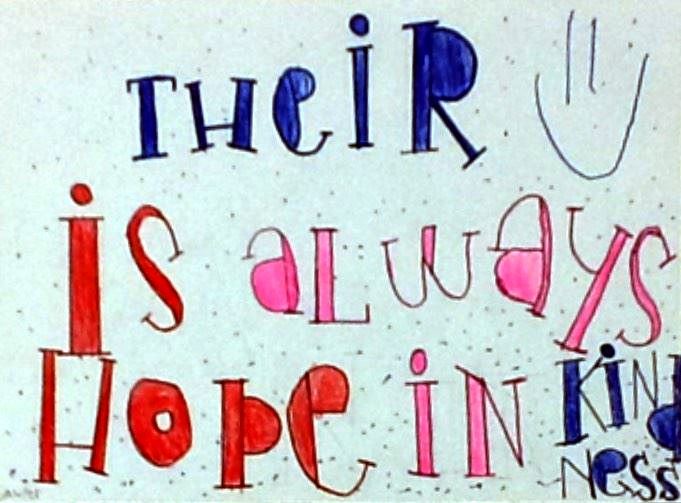 THeiR
is aLwayS
HoPe iN KiND
NeSS